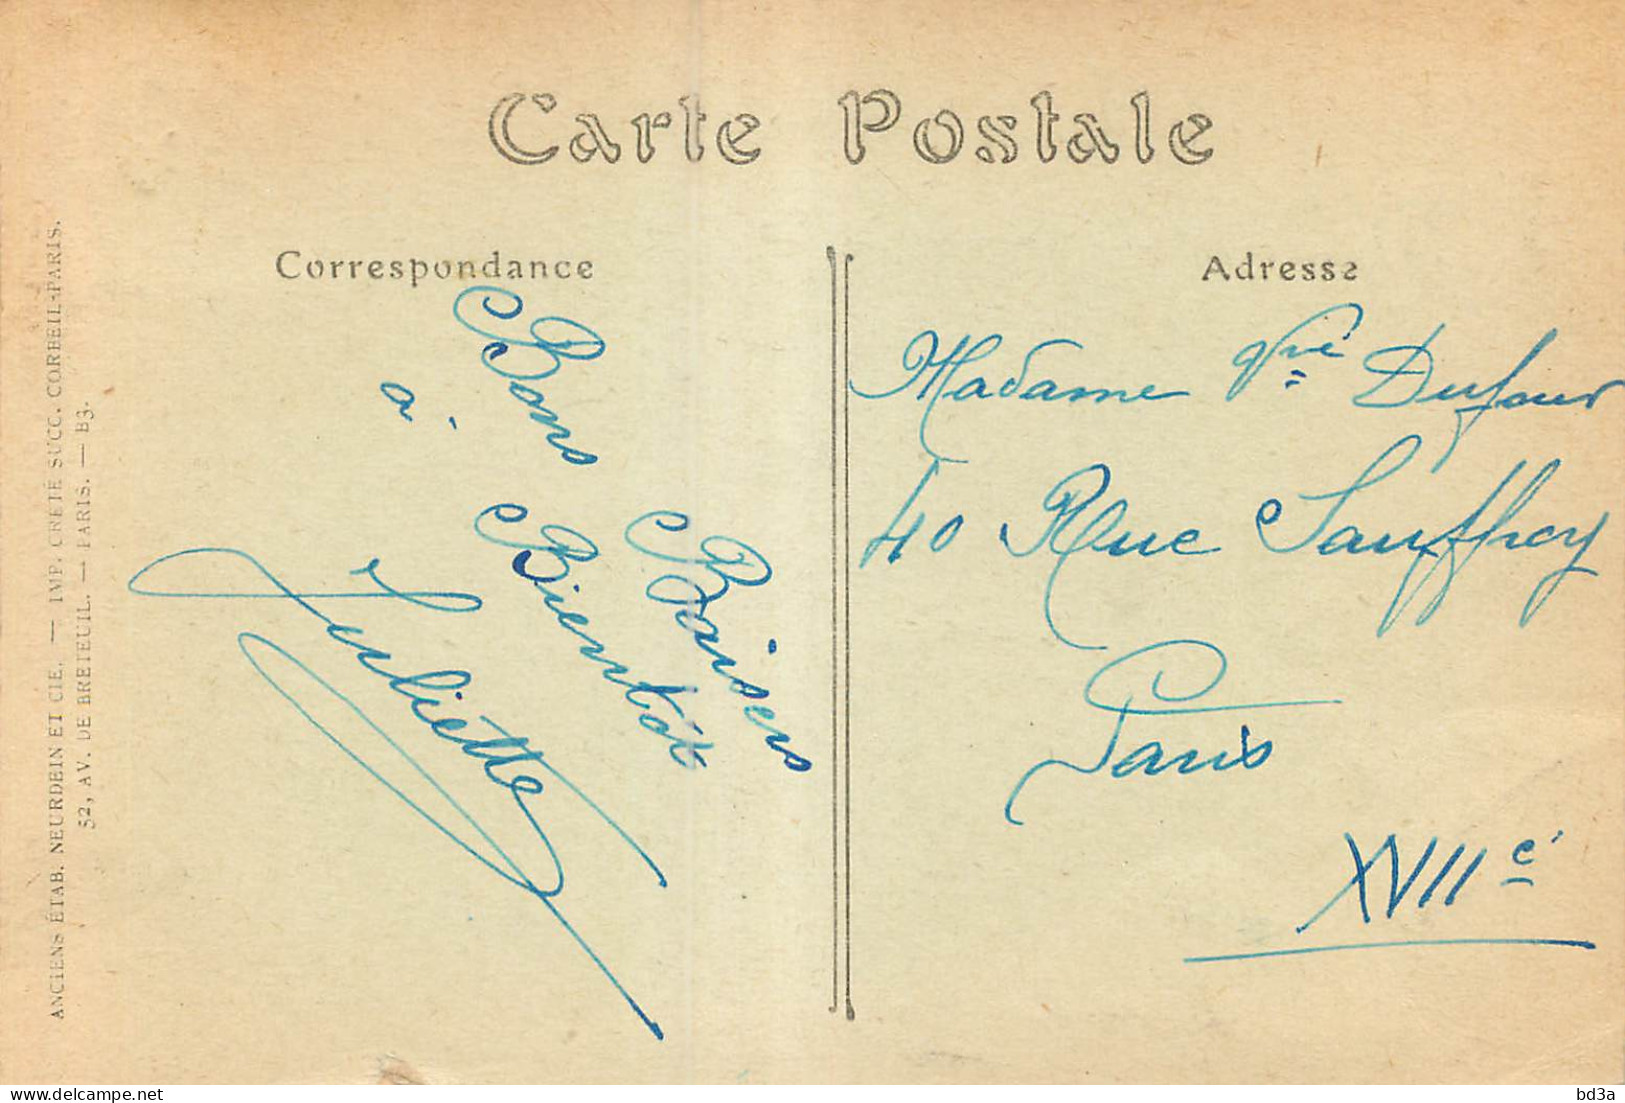 Carte Postale
Correspondance
Bons Baisers
à Bientôt
Juliette
Adresse
Madame Vve Dufour
40 Rue Sauffroy
Paris
XVIIe
ANCIENS ÉTAB. NEURDEIN ET CIE. — IMP. CRÉTÉ SUCC. CORBEIL-PARIS.
52, AV. DE BRETEUIL. — PARIS. — B3.
bd3a